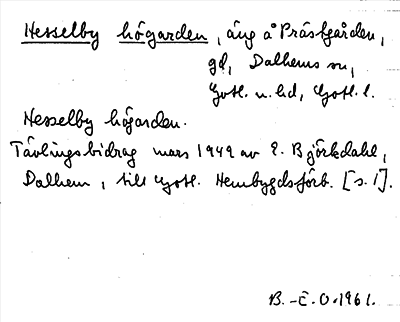 Hesselby högarden, äng å Prästgården,
gd, Dalhems sn,
Gotl. n. hd, Gotl. l.
Hesselby högarden.
Tävlingsbidrag mars 1949 av E. Björkdahl,
Dalhem, till Gotl. Hembygdsförb. [s. 1].
B.-E. O. 1961.